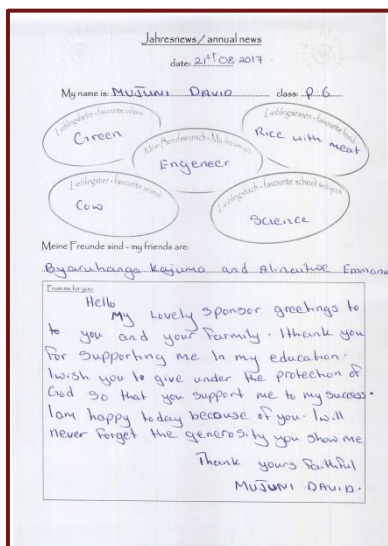 Jahresnews / annual news
date: 21st 08.2017
My name is: MUJUNI DAVID class: P.6
Lieblingsfarbe - favourite colour
Green
Lieblingsessen - favourite food
Rice with meat
Mein Berufswunsch - My dream job
Engeneer
Lieblingstier - favourite animal
Cow
Lieblingsfach - favourite school subject
Science
Meine Freunde sind - my friends are:
Byaruhanga Kajuma and Alinaitwe Emmanu
From me for you:
Hello
My Lovely sponsor greetings to
to you and your Farmily. Ithank you
For supporting me In my education.
I wish you to give under the protection of
God so that you support me to my success.
I am happy today because of you. I will
never Forget the generosity you show me
Thank yours Faithful
MUJUNI DAVID.